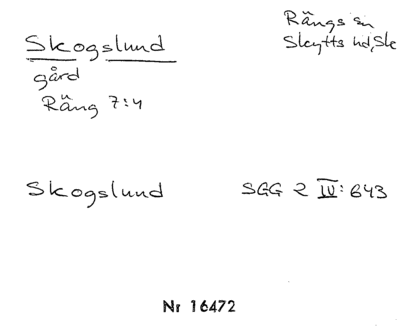 Skogslund
gård
Räng 7:4
Rängs sn
Skytts hd, Sk
Skogslund
SGG 2 IV: 643
Nr 16472